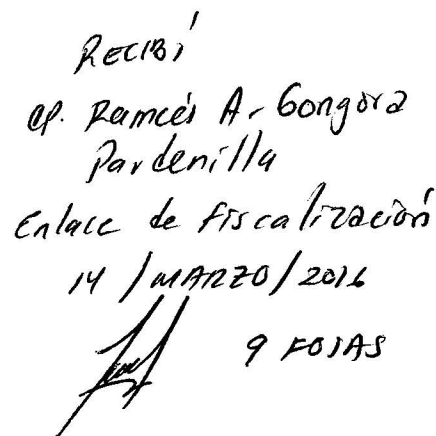 RECIBÍ
CP. Ramcés A. Gongora
Pardenilla
Enlace de fiscalización
14 / MARZO / 2016
9 FOJAS